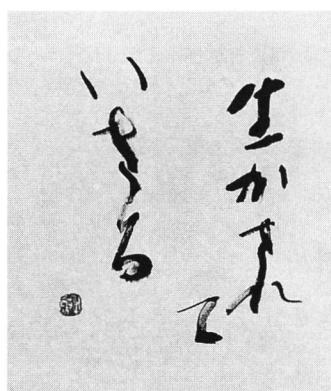 生かされて
いきる